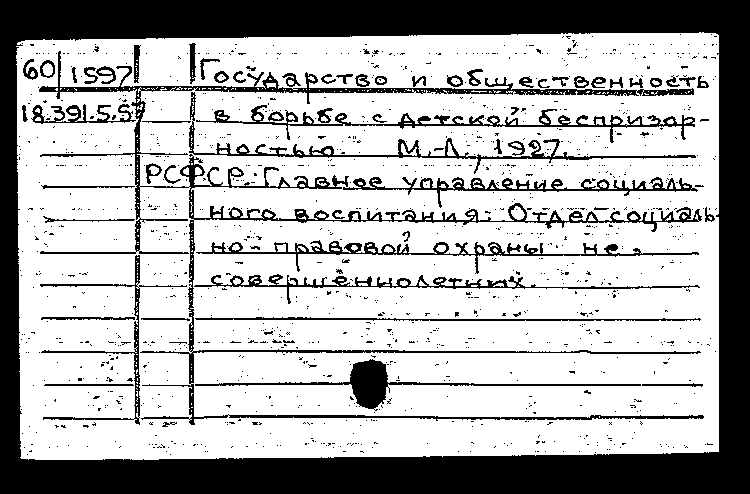 60/1597 Государство и общественность
18.391.5.57 в борьбе с детской беспризор-
ностью. М.-Л., 1927.
РСФСР. Главное управление социаль-
ного воспитания. Отдел социаль-
но-правовой охраны не-
совершеннолетних.